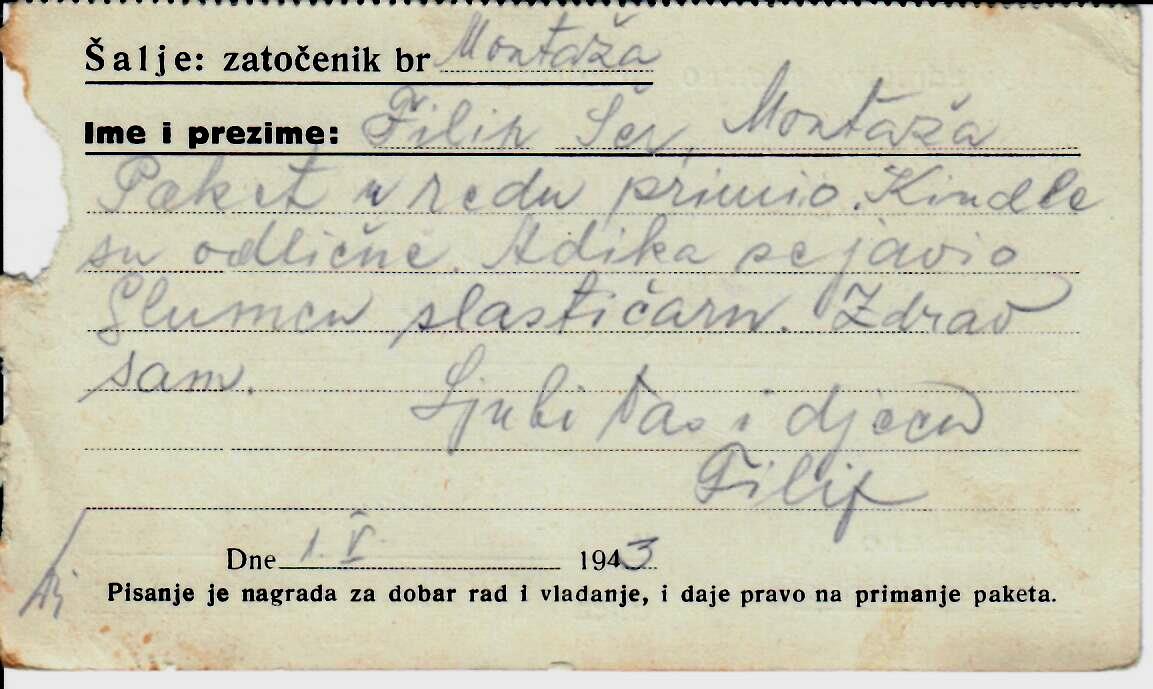 Šalje: zatočenik br Montaža
Ime i prezime: Filip Šer, Montaža
Paket u redu primio. Kindle
su odlične. Adika se javio
Glumcu slastičaru. Zdrav
sam.
Ljubi Vas i djecu
Filip
Dne 1. V. 1943
Pisanje je nagrada za dobar rad i vladanje, i daje pravo na primanje paketa.